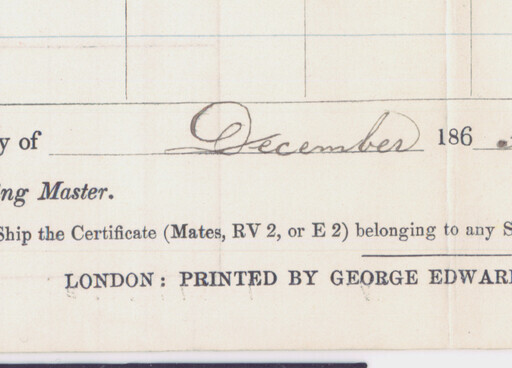 y of December 186
ng Master.
Ship the Certificate (Mates, RV 2, or E 2) belonging to any S
LONDON: PRINTED BY GEORGE EDWAR